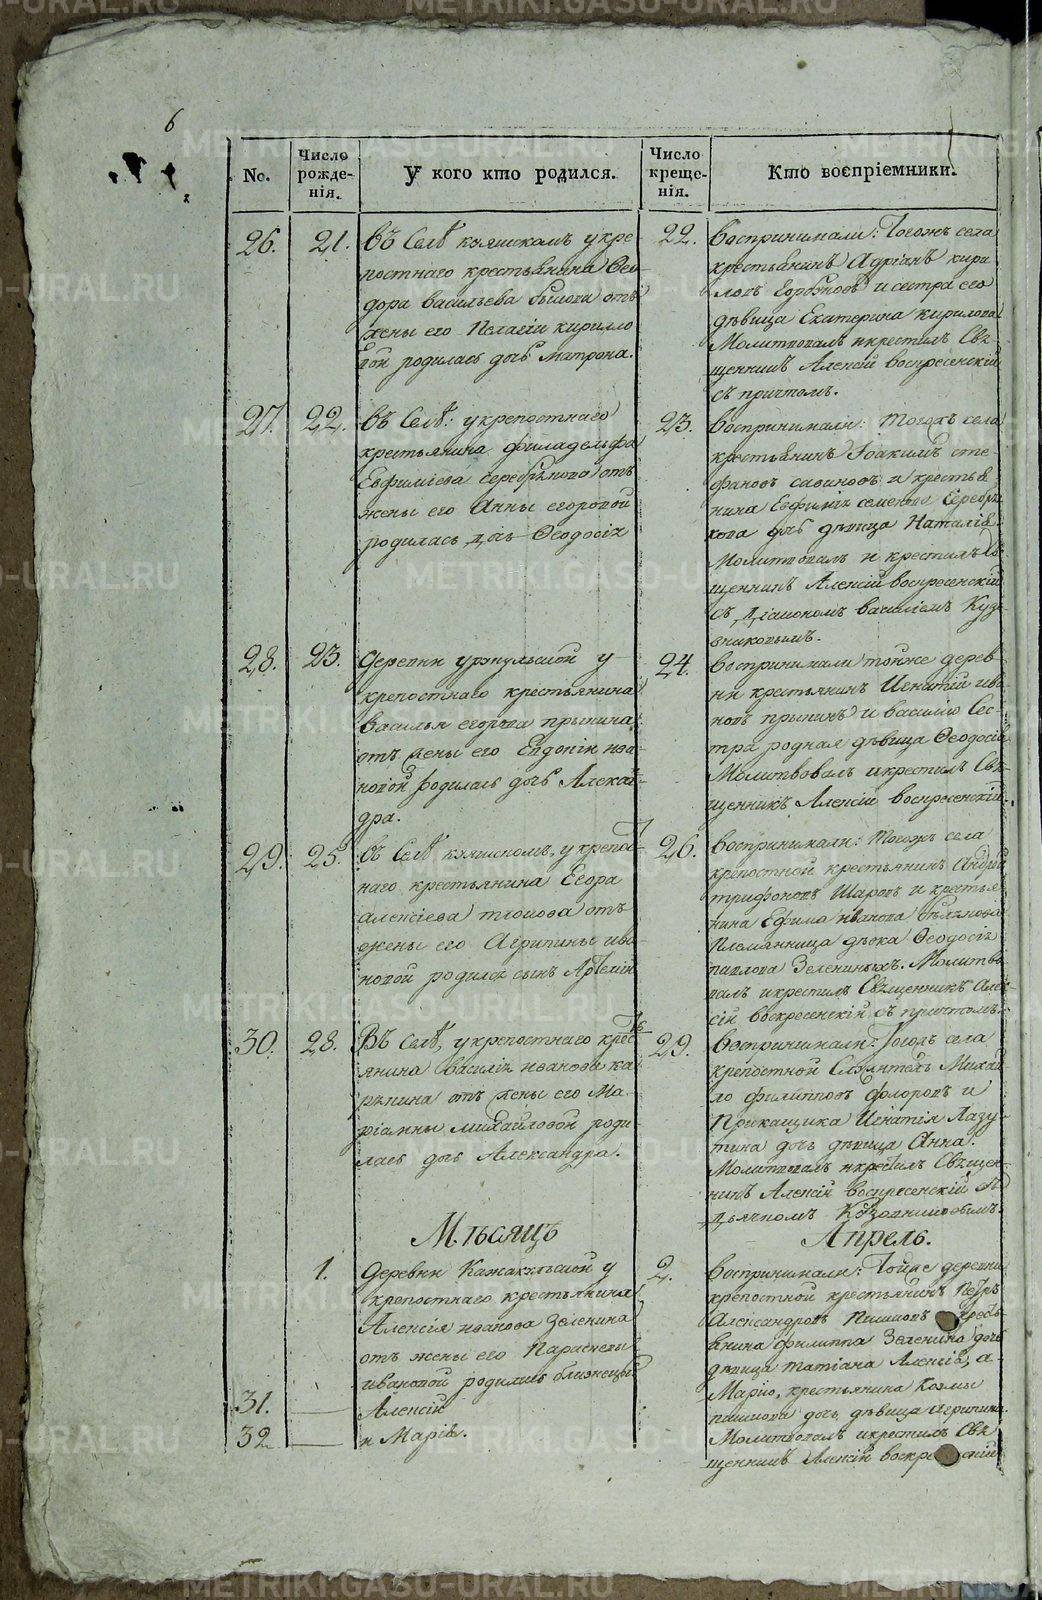 6
No.
Число рожде-нія.
У кого кто родился.
Число креще-нія.
Кто воспріемники.
26.
21.
Въ Селѣ куяшскомъ у кре
постнаго крестьянина Ѳео
дора васильева былова отъ
жены его Пелагіи кирилло
вой родилась дочь матрона.
22.
воспринимали: Тогожъ села
крестьянинъ Адріанъ кири
ловъ Горбуновъ и сестра его
дѣвица Екатерина кирилова
Молитвовалъ икрестилъ Свя
щенникъ Алексій воскресенскій
съ причтомъ.
27.
22.
въ Селѣ: у крепостнаго
крестьянина филадельфа
Евфиміева серебрякова отъ
жены его Анны егоровой
родилась дочь Ѳеодосія
23.
воспринимали: Тогожъ села
крестьянинъ Іоакимъ сте
фановъ савиновъ и крестья
нина Евфимія семенова Серебря
кова дочь дѣвица Наталія.
Молитвовалъ и крестилъ Свя
щенникъ Алексій воскресенскій
съ діакономъ василіемъ Кузо
вниковымъ.
28.
23.
Деревни урукульской у
крепостнаго крестьянина
василья егорова прынина
отъ жены его Евдокіи ива
новой родилась дочь Алексан
дра.
24.
воспринимали тойже дерев
ни крестьянинъ Игнатій ива
новъ прынинъ и василію Сес
тра родная дѣвица Ѳеодосія
Молитвовалъ икрестилъ Свя
щенникъ Алексій воскресенскій.
29.
25.
въ Селѣ куяшскомъ, у крепост
наго крестьянина Егора
алексіева отъ
жены его Агрипины ива
новой родился сынъ Артемій
26.
воспринимали: Тогожъ села
крепостной крестьянинъ Андрей
трифоновъ Шаровъ и крестья
нина Ефима иванова
Племянница дѣвка Ѳеодосія
павлова Зелениныхъ. Молитво
валъ икрестилъ Священникъ Алек
сій воскресенскій съ причтомъ.
30.
28.
Въ Селѣ, у крепостнаго крест
янина Василія иванова ка
рѣпина отъ жены его Ма
ріамны михайловой роди
лась дочь Александра.
29.
воспринимали: Тогожъ села
крепостной Служитель Михай
ло филиповъ флоровъ и
Прикащика Игнатія Лазу
тина дочь дѣвица Анна.
Молитвовалъ икрестилъ Священ
никъ Алексій воскресенскій съ
Дьячкомъ Кузовниковымъ.
Мѣсяцъ
Апрель.
1.
Деревни Кажакульской у
крепостнаго крестьянина
Алексія иванова Зеленина
отъ жены его Параскевы
ивановой родились близнецы:
2.
воспринимали: Тойже деревни
крепостной крестьянинъ Петръ
Александровъ Пашновъ крестья
янина филиппа Зеленина дочь
дѣвица татіана Алексія, а
Марію, крестьянина Козмы
пашнова дочь дѣвица агрипина.
Молитвовалъ икрестилъ Свя
щенникъ Алексій воскресенскій
31.
Алексій
32
и Марія.